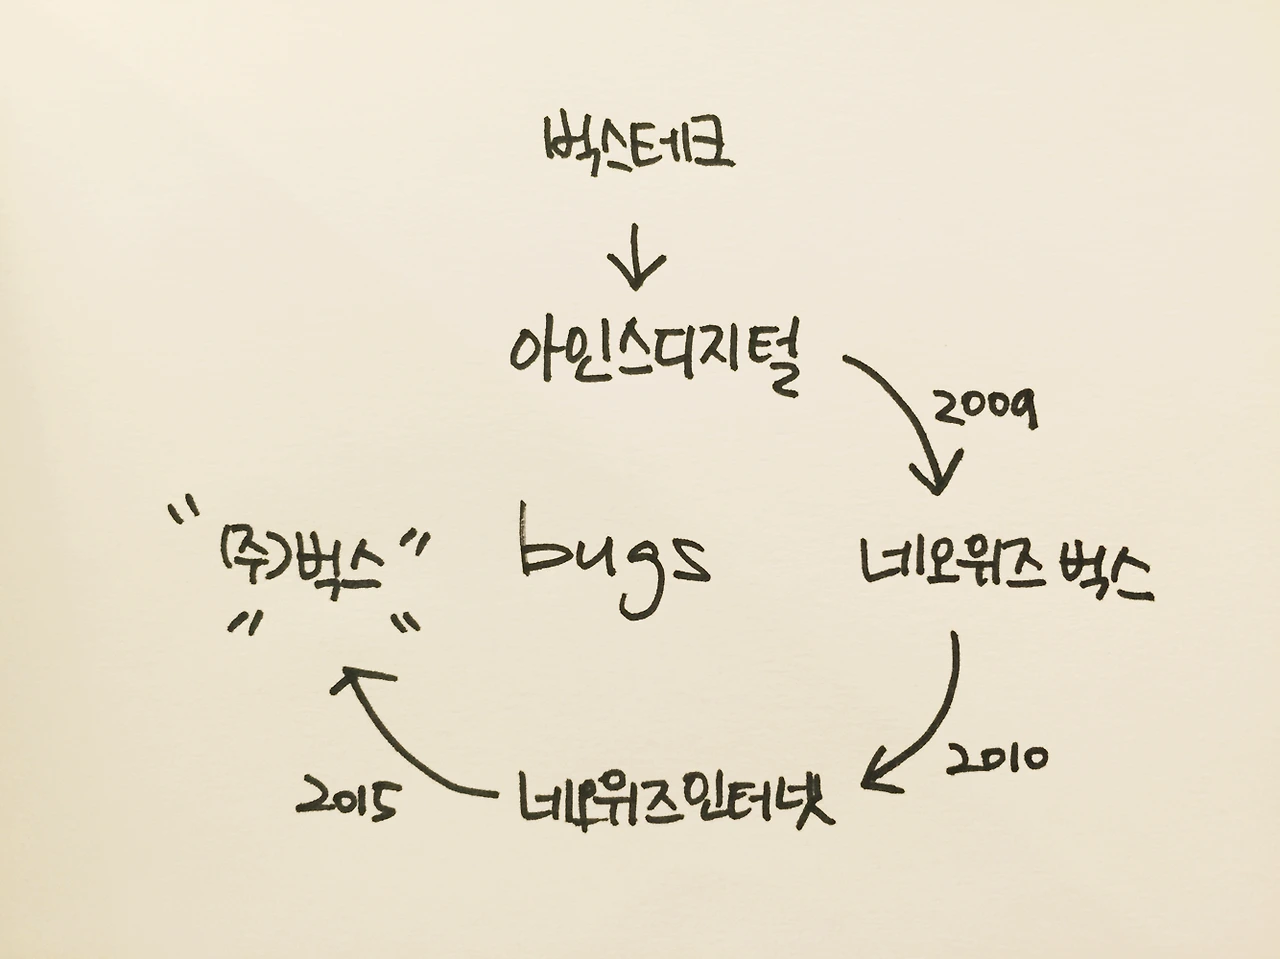 벅스테크
아인스디지털
2009
"(주)벅스"
" "
bugs
네오위즈 벅스
2010
네오위즈인터넷
2015